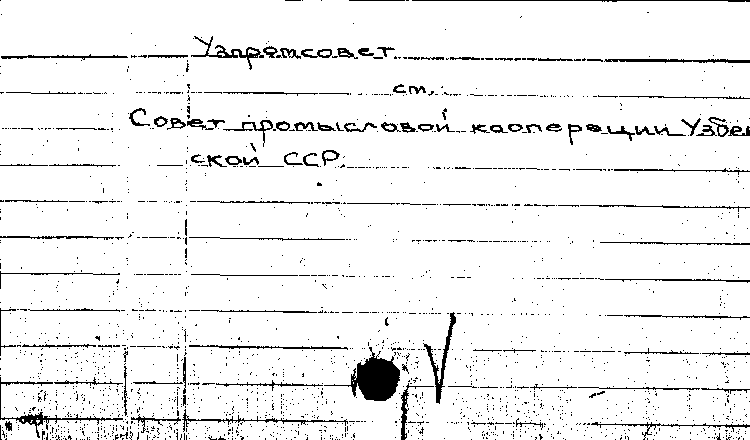 Узпромсовет
см.
Совет промысловой кооперации Узбек
ской ССР.